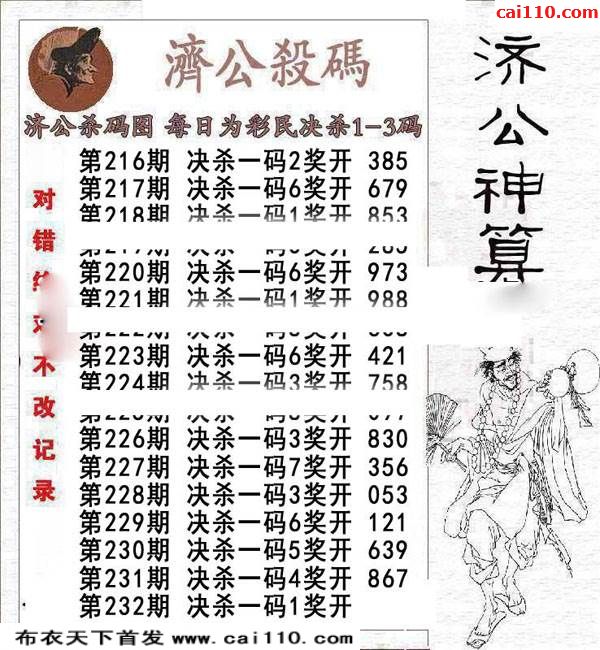 cai110.com
濟公殺碼
济公杀码图 每日为彩民决杀1-3码
第216期 决杀一码2奖开 385
第217期 决杀一码6奖开 679
第218期 决杀一码1奖开 853
第220期 决杀一码6奖开 973
第221期 决杀一码1奖开 988
第223期 决杀一码6奖开 421
第224期 决杀一码3奖开 758
第226期 决杀一码3奖开 830
第227期 决杀一码7奖开 356
第228期 决杀一码3奖开 053
第229期 决杀一码6奖开 121
第230期 决杀一码5奖开 639
第231期 决杀一码4奖开 867
第232期 决杀一码1奖开
对错
不改记录
济公神算
布衣天下首发 www.cai110.com